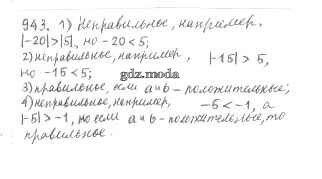 943. 1) Неправильное, например.
|-20|>|5|, но -20<5;
2) неправильное, например, |-15| > 5,
но -15<5;
gdz.moda
3) правильное, если a и b – положительные;
4) неправильное, например, -5<-1, а
|-5|>-1, но если a и b – положительные, то
правильное.